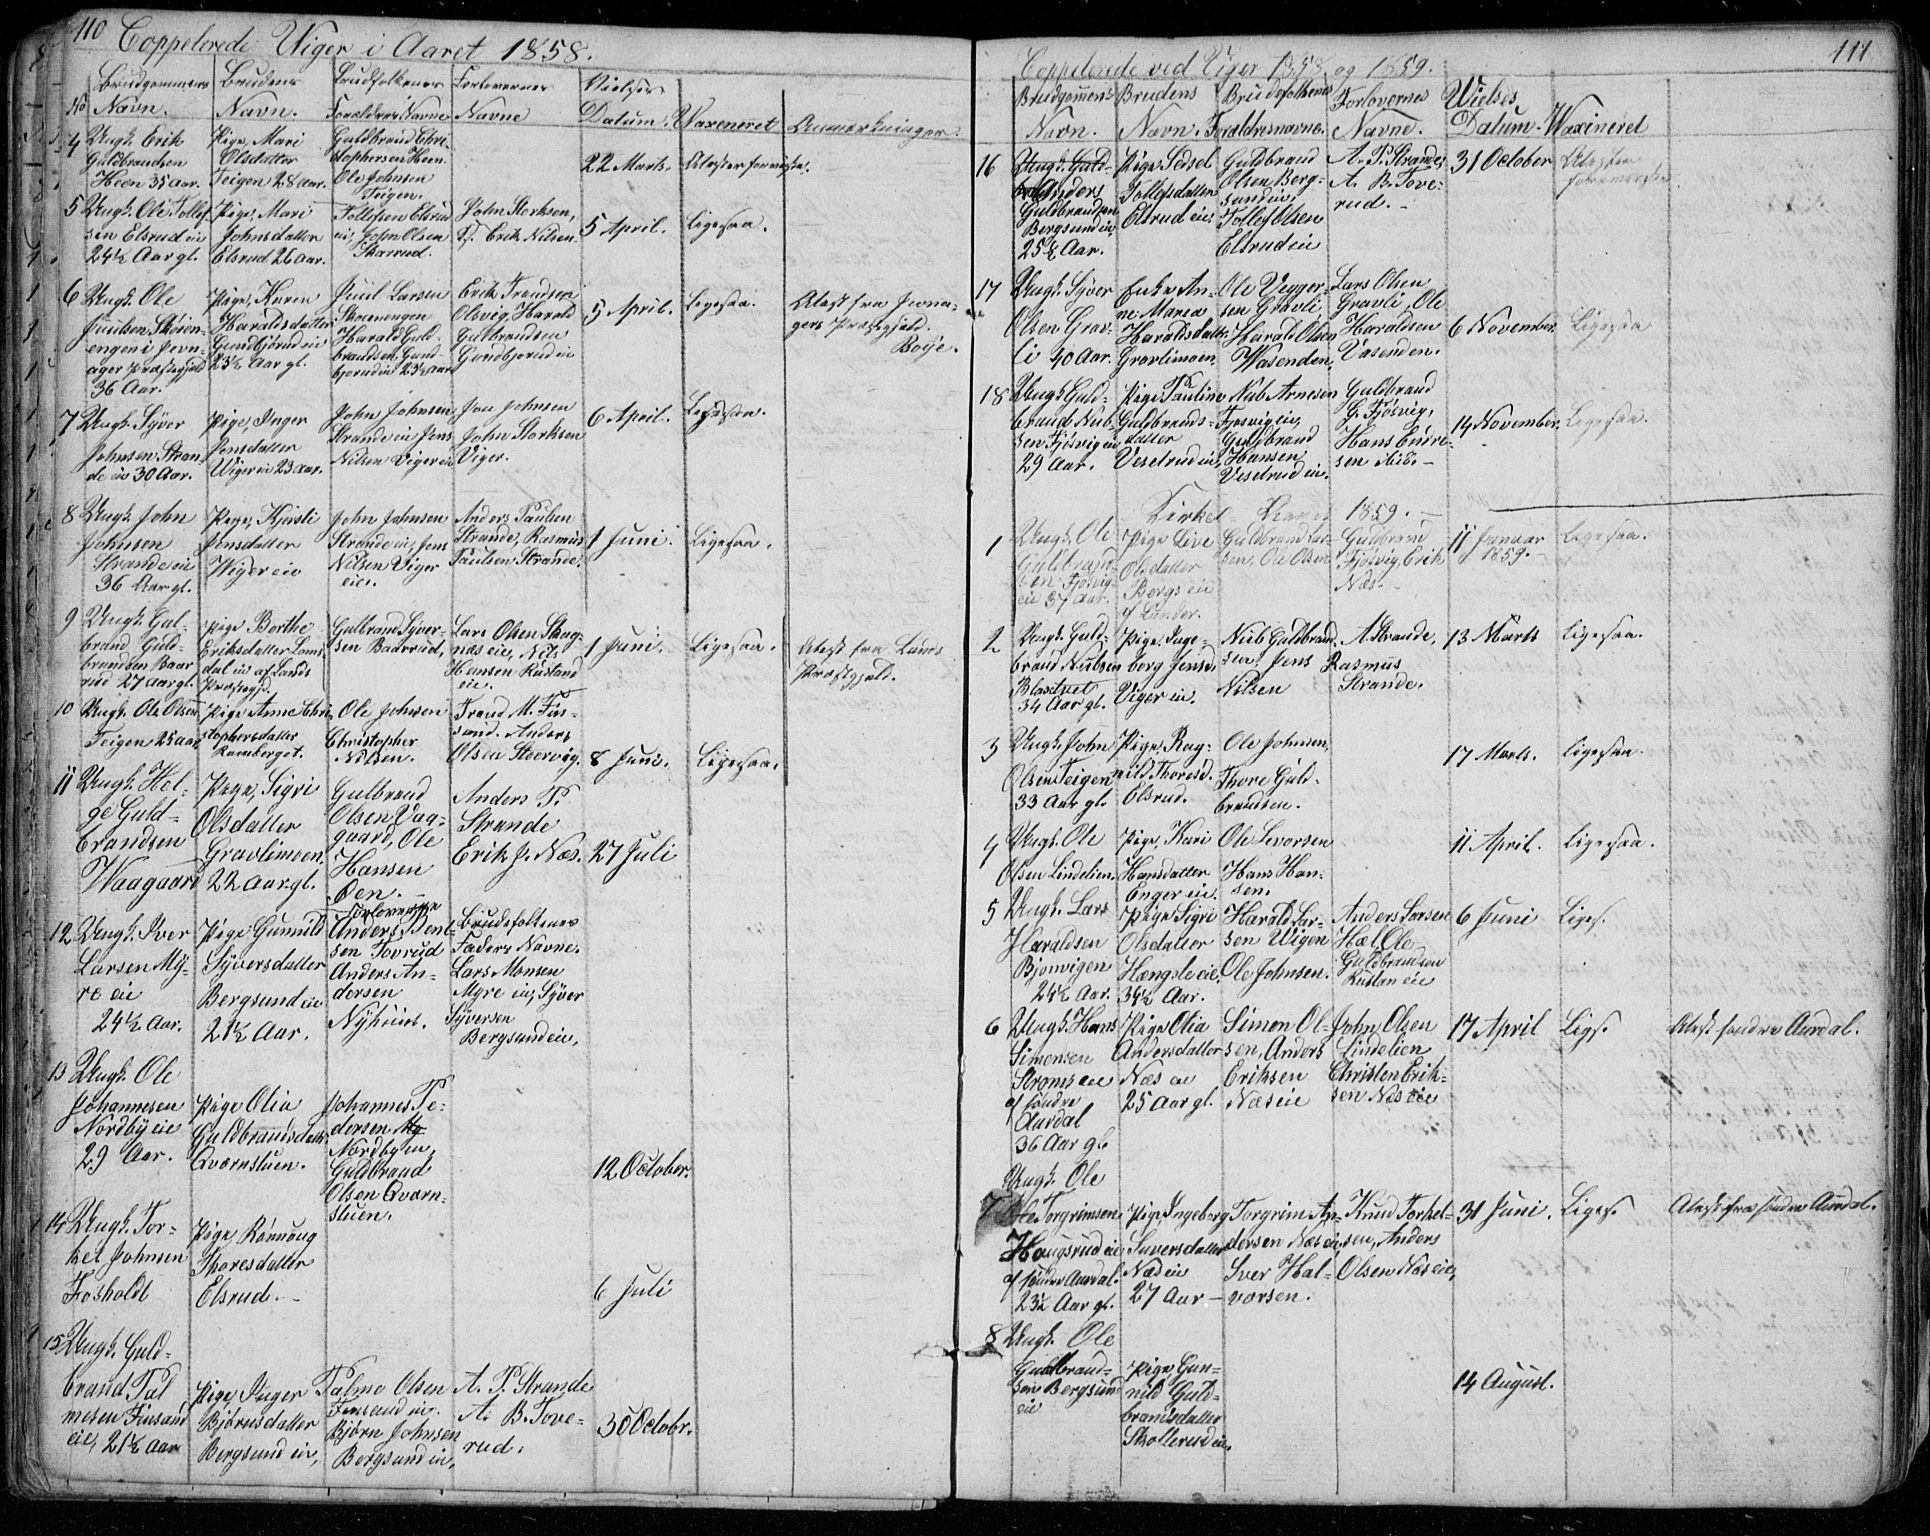 110 Coppelerede Viger i Aaret 1858.
Brudgommens Navn.
Brudens Navn.
Brudfolkenes Forældres Navne
Forlovernes Navne
Vielses Datum.
Vaxeneret
Anmerkninger.
4
Ungk. Erik
Guldbrandsen
Heen 35 Aar.
Pige, Mari
Olsdatter
Teigen 28 Aar.
Guldbrand Chri-
stophersen Heen
Ole Johnsen
Teigen.
22 Marts.
Attester foreviste.
5 Ungk. Ole Tollef
sen Elsrud eie
24½ Aar gl.
Pige, Mari
Johnsdatter
Elsrud 26 Aar.
Tollefsen Elsrud
eie, John Olsen
Skarrud.
John Storksen,
Erik Nilsen.
5 April.
Ligesaa.
6 Ungk. Ole
Juulsen Skoien-
engen i Jevn-
ager Præstegjeld
36 Aar.
Pige, Karen
Haraldsdatter
Gundbjørud eie
23½ Aar gl.
Juul Larsen
Skoienengen
Harald Guld-
brandsen Gund-
bjorud eie 23½ Aar
Erik Trondsen
Olsvig, Harald
Gulbrandsen
Gundbjorud eie
5 April.
Ligesaa.
Attest fra Jevna-
gers Præstgjeld.
Boije.
7 Ungk. Syver
Johnsen Stran-
de eie 30 Aar.
Pige, Inger
Jensdatter
Viger eie 23 Aar.
John Johnsen
Strande eie Jens
Nilsen Viger eie
Jon Johnsen
John Storksen
Viger.
6 April.
Ligesaa.
8 Ungk. John
Johnsen
Strande eie
36 Aar gl.
Pige, Kjersti
Jensdatter
Wiger eie
John Johnsen
Strande eie, Jens
Nilsen Viger
eie.
Anders Paulsen
Strande, Rasmus
Paulsen Strande,
1 Juni.
Ligesaa.
9 Ungk. Gul-
brand Guld-
brandsen Baar
rud 27 Aar gl.
Pige Berthe
Eriksdatter
eie af Lands
Præstegj.
Gulbrand Syver-
sen Badrrud,
Lars Olsen Skag-
næs eie, Nils
Hansen Rustand
eie.
1 Juni.
Ligesaa.
Attest fra Lands
Præstgjeld.
10 Ungk. Ole Olsen
Teigen 25 Aar
Pige Anne Chri-
stophersdatter
Ramberget.
Ole Johnsen
Christopher
Nilsen.
Trond M. Fin-
sand. Anders
Olsen Stoervig.
8 Juni.
Ligesaa.
11 Ungk. Hel-
ge Guld-
brandsen
Waagaard
Pige, Sigri
Olsdatter
Gravlimoen
22 Aar gl.
Gulbrand
Olsen Vaa-
gaard, Ole
Hansen
Øen.
Anders P.
Strande
Erik J. Næs.
27 Juli
12 Ungk. Iver
Larsen My-
re eie
24½ Aar.
Pige Gunnild
Syversdatter
Bergsund eie
21½ Aar.
Forloverne
Anders Bent-
sen Tovrud
Anders An-
dersen
Nyhuus.
Brudefolkenes
Faders Navne.
Lars Monsen
Myre eie, Syver
Syversen
Bergsund eie,
13 Ungk. Ole
Johannesen
Nordby eie
29 Aar.
Pige Olia
Guldbrandsdatter
Qværnstuen.
Johannes Pe-
dersen
Nordby eie,
Guldbrand
Olsen Qværn-
stuen.
12 October.
14 Ungk. Tor-
kel Johnsen
Fosholdt
Pige Rønnoug
Thoresdatter
Elsrud.
6 Juli
15 Ungk. Guld-
brand Pal
mesen Finsand
eie, 21½ Aar
Pige, Inger
Bjørnsdatter
Bergsund eie,
Palme Olsen
Finsand eie.
Bjørn Johnsen
Bergsund eie,
A. P. Strande
A. B. Tove-
rud.
30 Octobr.
111
Coppelerede ved Viger 1858 og 1859.
Brudgomens Navn.
Brudens Navn.
Brudefolkenes Foraldresnavne.
Forlovernes Navne.
Wielses Datum.
Waxineret
16
Ungk. Guld-
Anders
Guldbrandsen
Bergsund eie,
25½ Aar.
Pige Sidsel
Tollefsdatter
Elsrud eie
Guldbrand
Olsen Berg-
sund eie,
Tollef Olsen
Elsrud eie
A. P. Strande,
A. B. Tove-
rud.
31 October
Attester
foreviste
17
Ungk. Syver
Olsen Grav-
li 40 Aar.
Enke An-
ne Maria
Haraldsdatt.
Gravlimoen.
Ole Vegger-
sen Gravli,
Harald Olsen
Wasenden,
Lars Olsen
Gravli, Ole
Haraldsen
Vasenden.
6 November.
Ligesaa
18 Ungk Guld-
brand Nub-
sen Fjøsvig eie
29 Aar.
Pige Pauline
Guldbrands-
datter
Vesetrud eie,
Nub Arnesen
Fjøsvig eie,
Guldbrand
Hansen
Vesetrud eie.
Guldbrand
G. Fjøsvig,
Hans Endre-
sen ibid.
14 November.
Ligesaa.
Kirke Aaret 1859.
1
Ungk. Ole
Guldbrand-
sen Fjøsvig
eie 37 Aar.
Pige Live
Olsdatter
Bergs eie
af Lander.
Guldbrand Lar-
sen, Ole Olsen
Guldbrand
Fjøsvig, Erik
Næs.
11 Januar
1859.
Ligesaa.
2
Ungk. Guld-
brand Nubsen
Blaatvet
34 Aar gl.
Pige, Inge-
borg Jensd.
Viger eie.
Nub Guldbrand-
sen Jens
Nilsen
A. Strande,
Rasmus
Strande.
13 Marts
Ligesaa.
3
Ungk. John
Olsen Teigen
33 Aar gl.
Pige, Rag-
nild Thoresd.
Elsrud.
Ole Johnsen,
Thore Guld-
brandsen.
17 Marts.
Ligesaa.
4
Ungk. Ole
Olsen Lindelien.
Pige, Kari
Hansdatter
Enger eie.
Ole Levorsen
Hans Han-
sen.
11 April.
Ligesaa.
5
Ungk. Lars
Haraldsen
Bjonvigen
24½ Aar.
Pige Sigri
Olsdatter
Hængsle eie,
34½ Aar.
Harald Lar-
sen Wigen
Ole Johnsen.
Anders Larsen
Hæl, Ole
Guldbrandsen
Rustan eie
6 Juni
Liges.
6 Ungk. Hans
Simensen
Stroms eie
af søndre
Aurdal
36 Aar gl.
Pige Olia
Andersdatter
Næs eie
25 Aar gl.
Simon Ol-
sen, Anders
Eriksen
Næs eie
John Olsen
Lindelien
Christen Erik-
sen Næs eie
17 April
Ligs.
Attest søndre Aurdal.
7
Ungk. Ole
Torgrimsen
Haugsrud eie
af søndre Aurdal.
23½ Aar gl.
Pige, Ingeborg
Suversdatter
Næs eie
27 Aar
Torgrim An-
dersen Næs eie,
Sver Hal-
vorsen.
Knud Torkel-
sen, Anders
Olsen Næs eie,
31 Juni.
Liges.
Attest fra søndre Aurdal.
8 Ungk. Ole
Guldbrand-
sen Bergsund
eie
Pige, Gun-
nild Guld-
brandsdatter
Skollerud eie.
14 August.